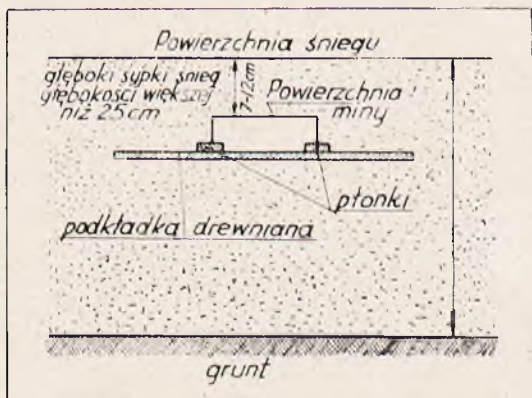 Powierzchnia śniegu
głęboki sypki śnieg
głębokości większej
niż 25cm
7-12cm
Powierzchnia
miny
płonki
podkładka drewniana
grunt